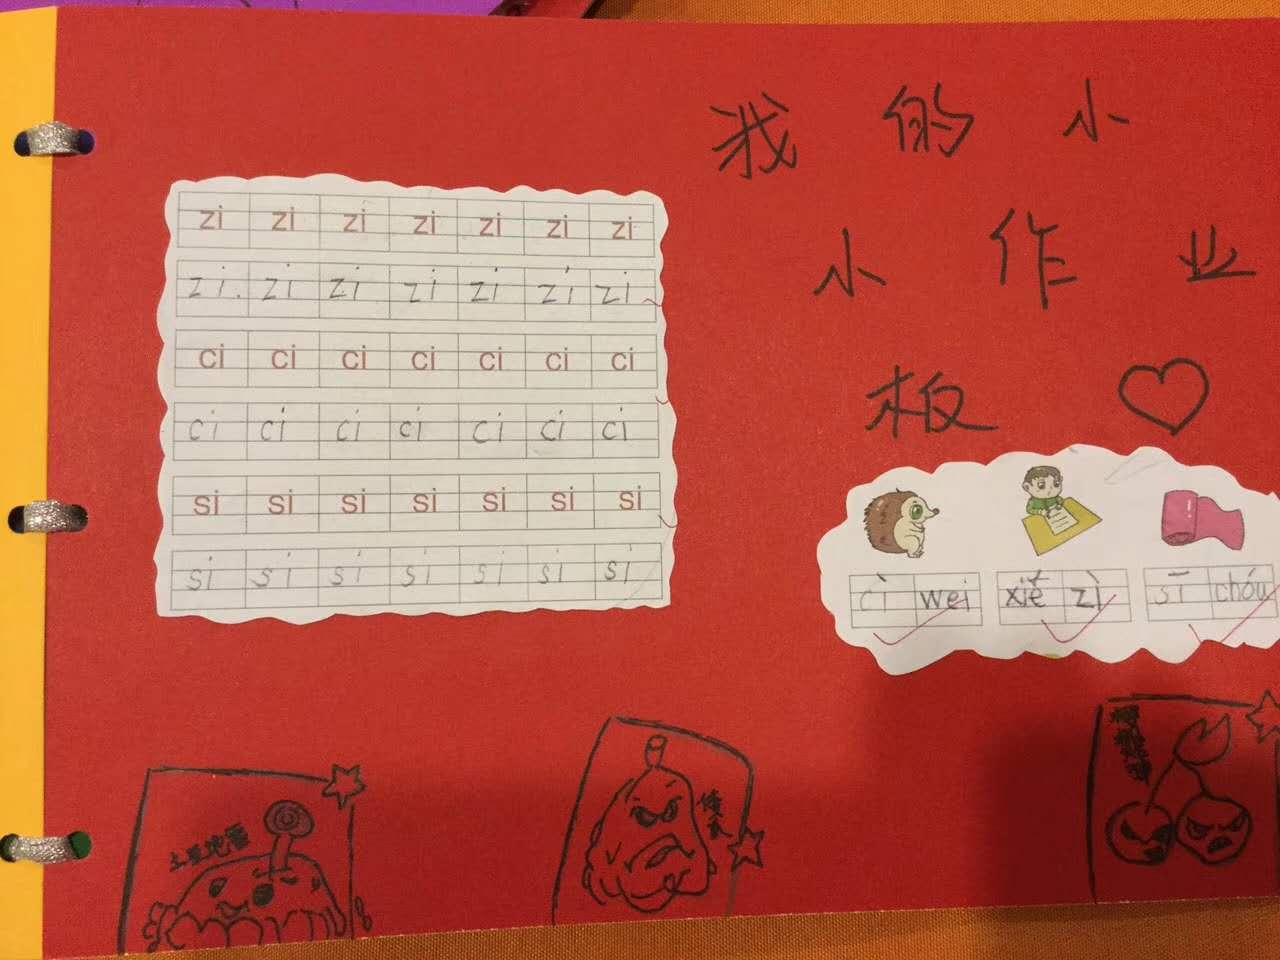 我的小
小作业
板
zi zi zi zi zi zi zi
zi. zi zi zi zi zi zi
ci ci ci ci ci ci ci
ci ci ci ci ci ci ci
si si si si si si si
si si si si si si si
cì wei xiě zì sī chóu
土豆地雷
倭瓜
樱桃炸弹